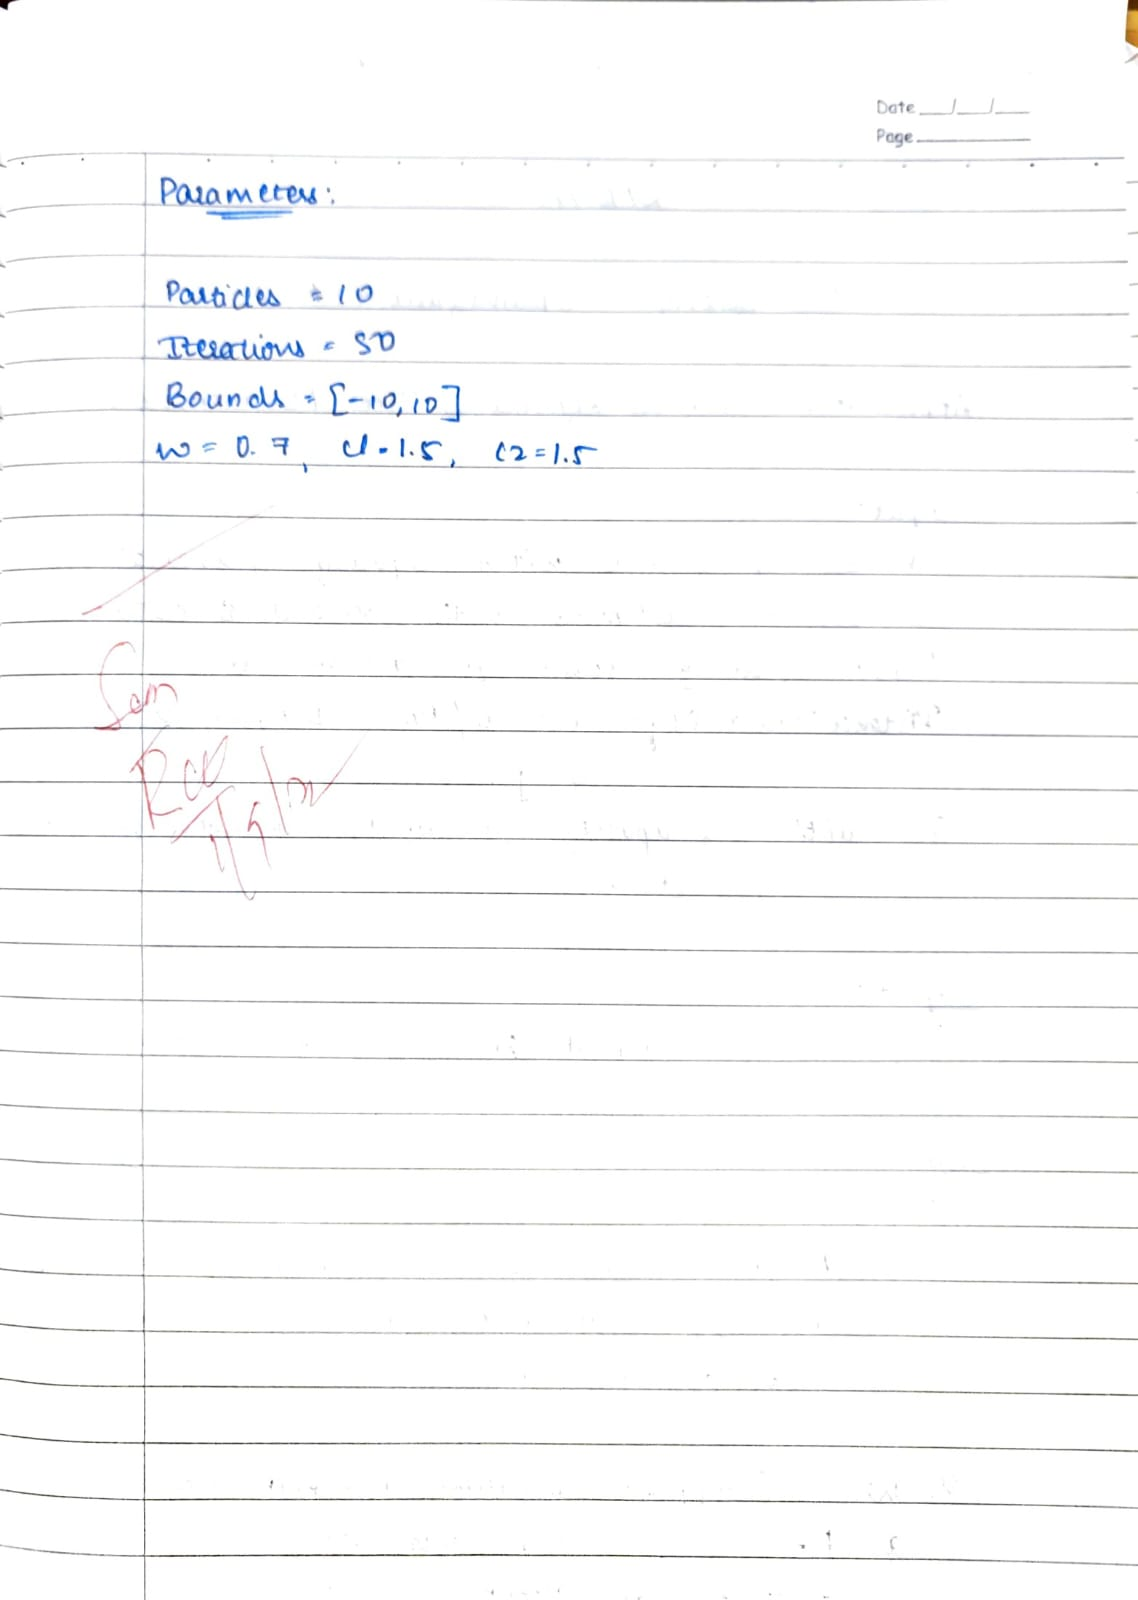 Date
Page
Parameters:
Particles = 10
Iterations = 50
Bounds = [-10, 10]
w = 0.7, c1 = 1.5, c2 = 1.5